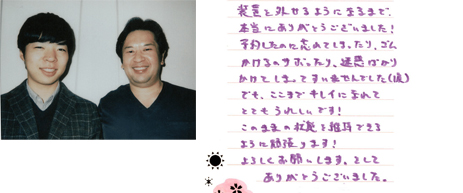 装置を外せるようになるまで、
本当にありがとうございました！
予約したのに忘れてしまったり、ゴム
かけるのサボったり、迷惑ばかり
かけてしまってすいませんでした(涙)
でも、ここまでキレイになれて
とてもうれしいです！
このままの状態を維持できる
ように頑張ります！
よろしくお願いします。そして
ありがとうございました。